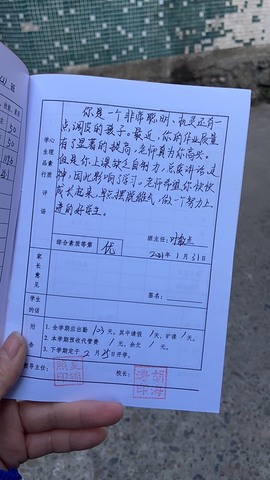 你是一个非常聪明、机灵还有一
点调皮的孩子。最近，你的作业质量
有了显著的提高，老师真为你高兴。
但是你上课缺乏自制力，总爱讲话、走
神，因此影响了学习。老师希望你快快
成长起来，早点摆脱幼稚，做一个努力上
进的好学生。
心理品质
学生素行
评语
班主任：
2021年1月31日
综合素质等第 优
家长意见
签名：
学生的话
附
1. 全学期应出勤 103 天。其中请假 1 天、旷课 1 天。
2. 本学期预收代管费 1 元，余欠 1 元。
告
3. 下学期定于 2 月 25 日开学。
教导主任：
校长：
胡海